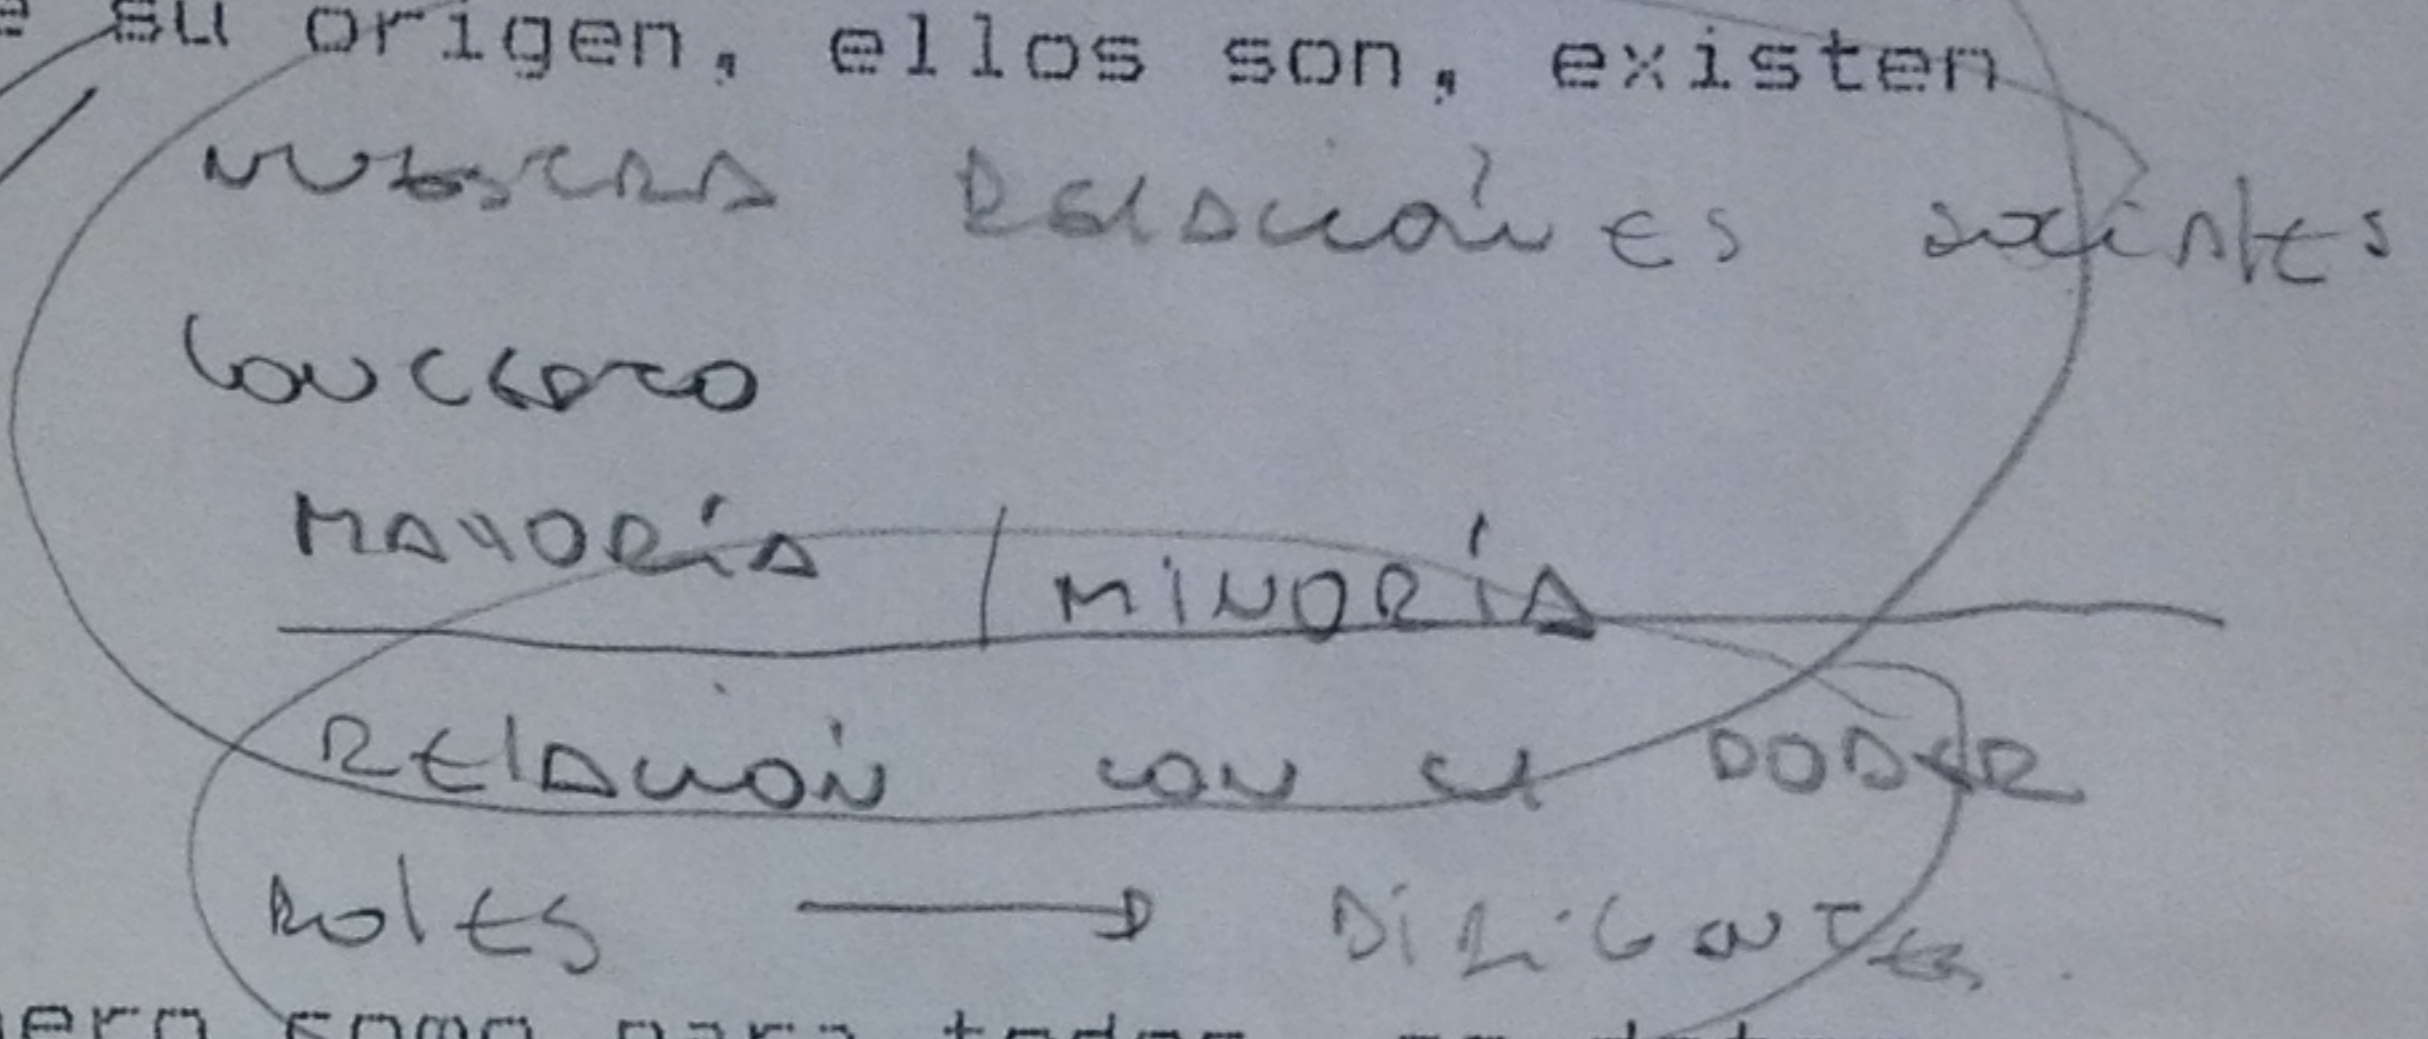 su origen, ellos son, existen
NUESTRA RELACIÓN ES sociales
CONCEPTO
MAYORÍA / MINORÍA
RELACIÓN CON EL PODER
ROLES → DIRIGENTES.
como para todos